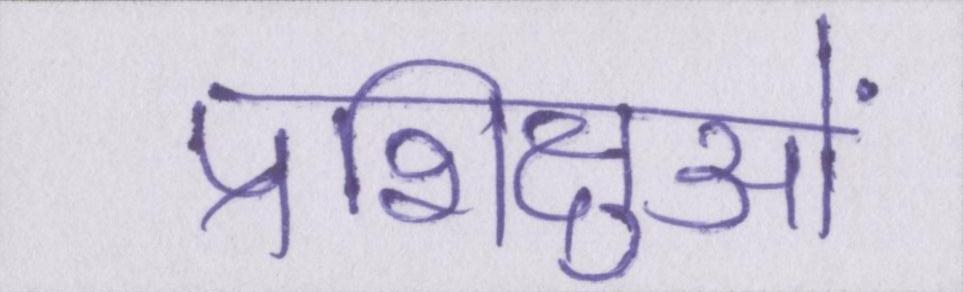 प्रशिक्षुओं